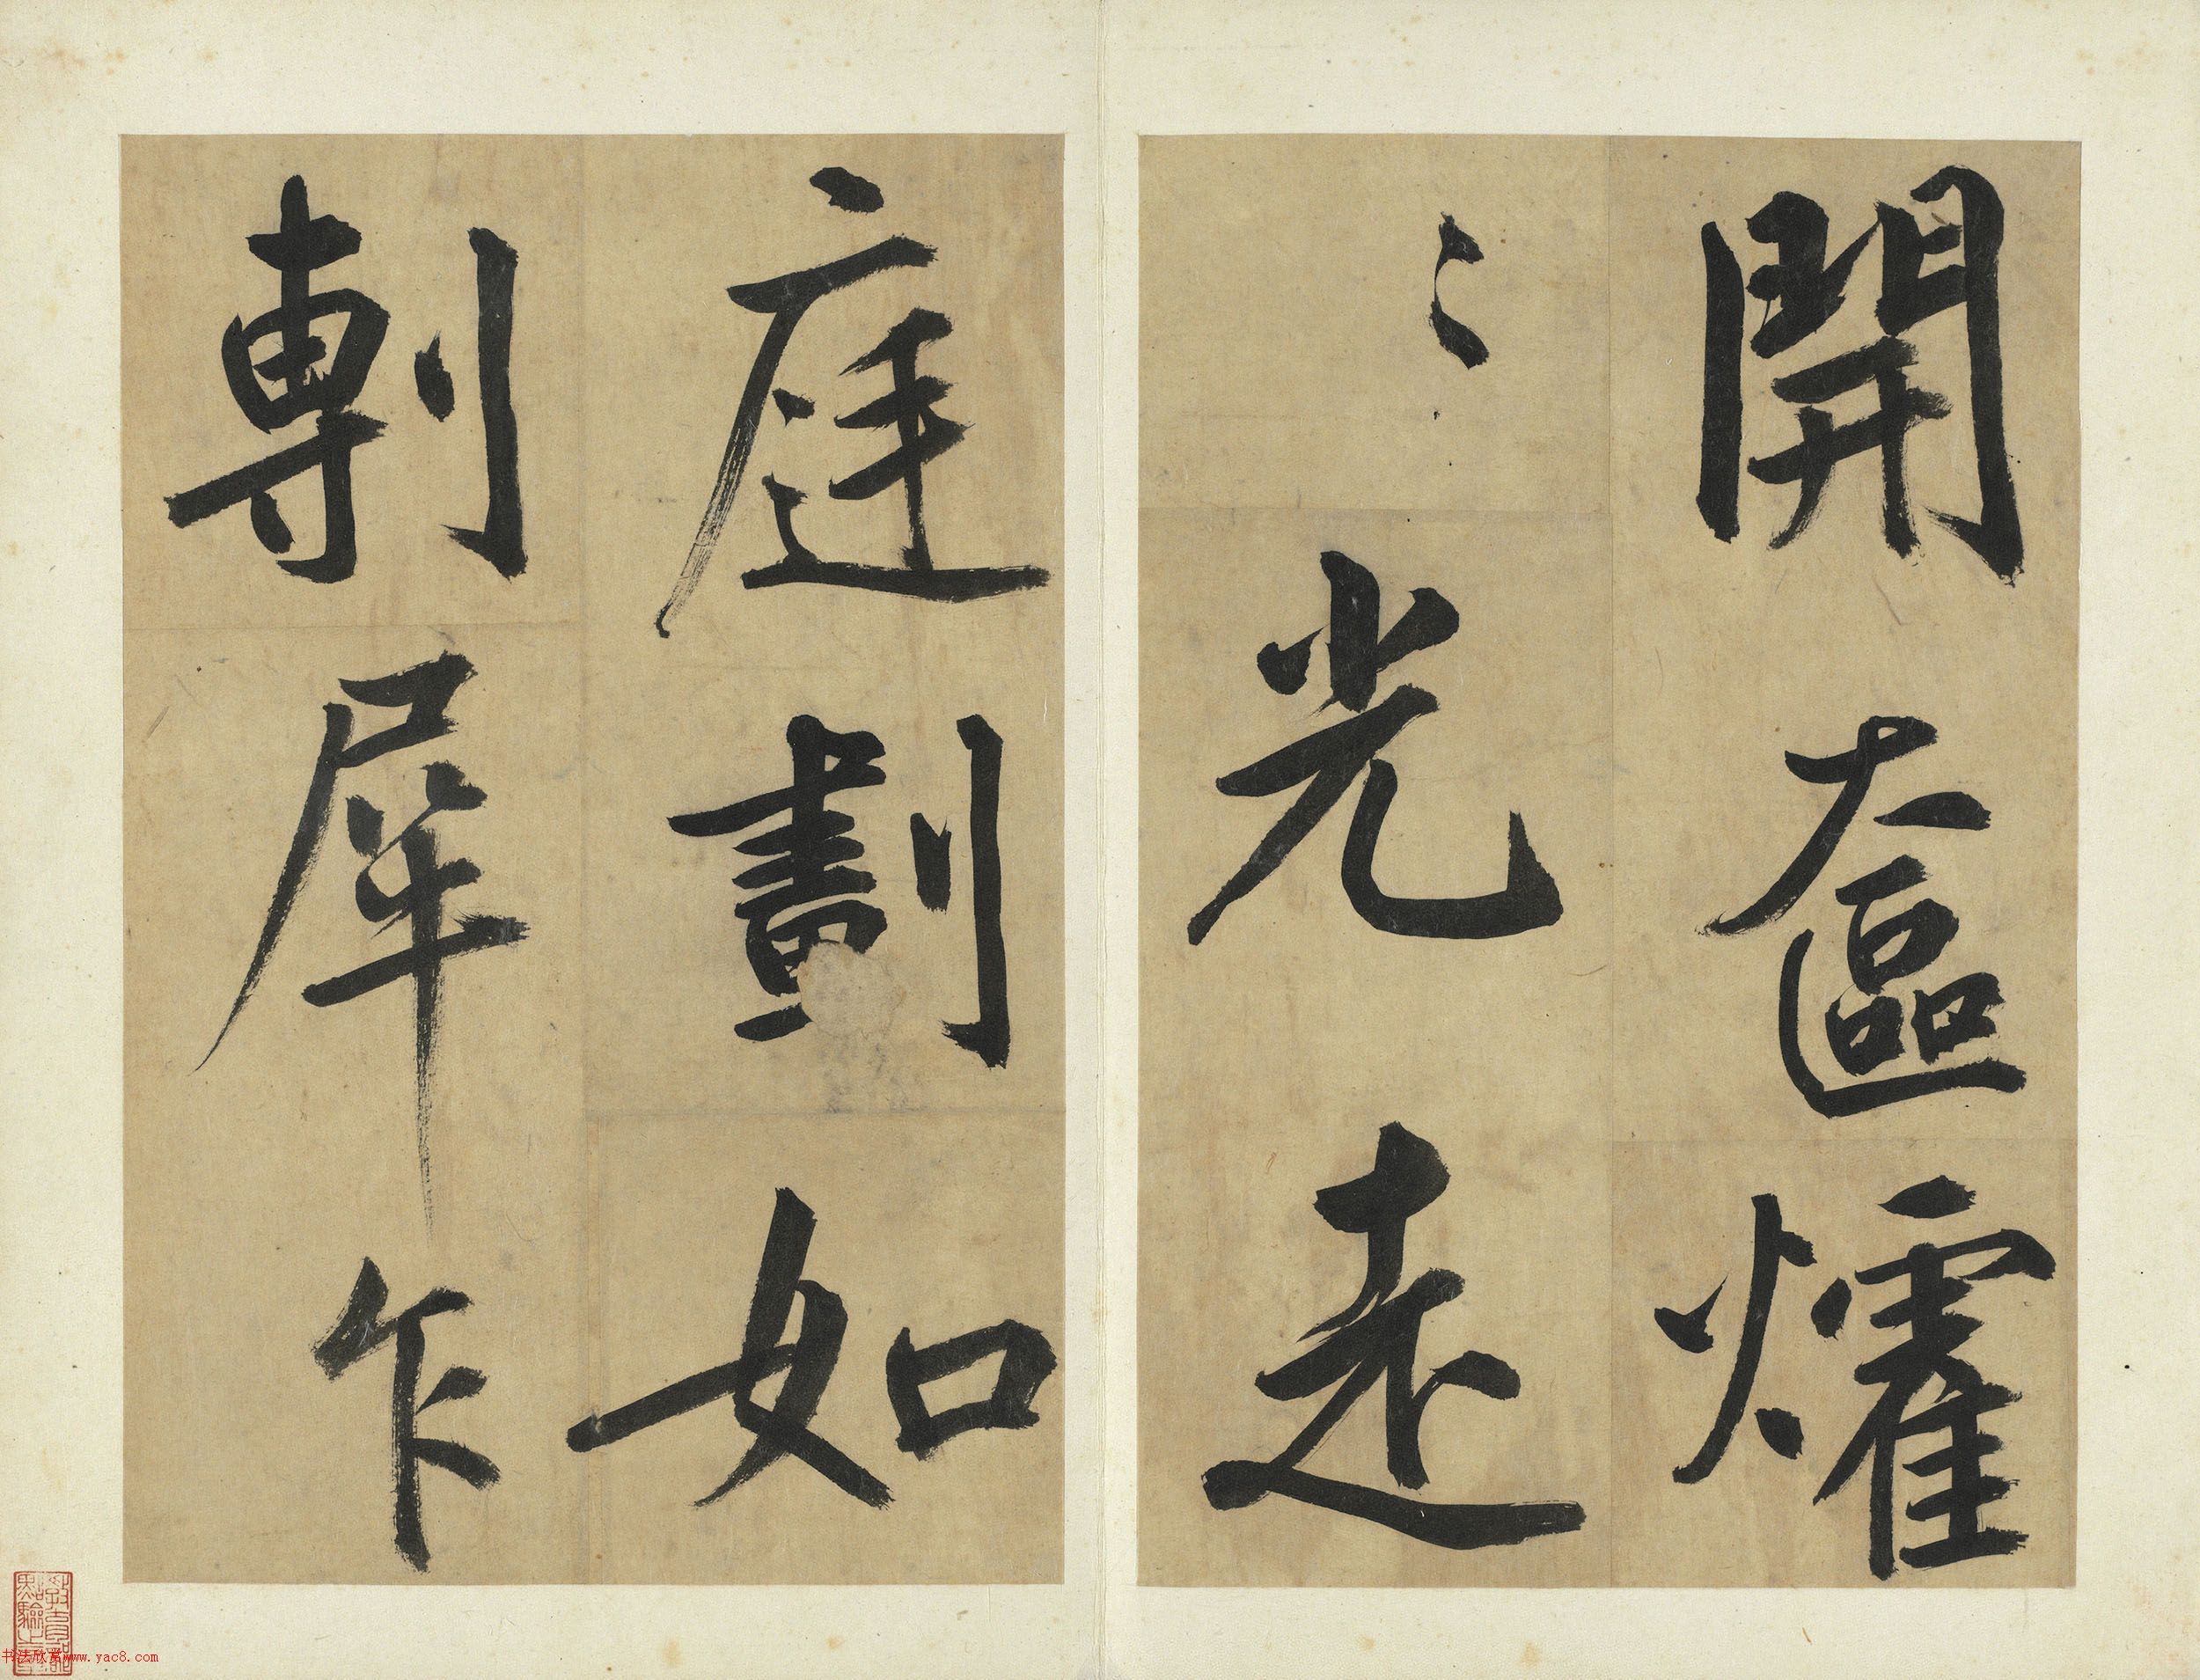 開奩爠
〻光走
庭劃如
剸犀乍
书法欣赏www.yac8.com